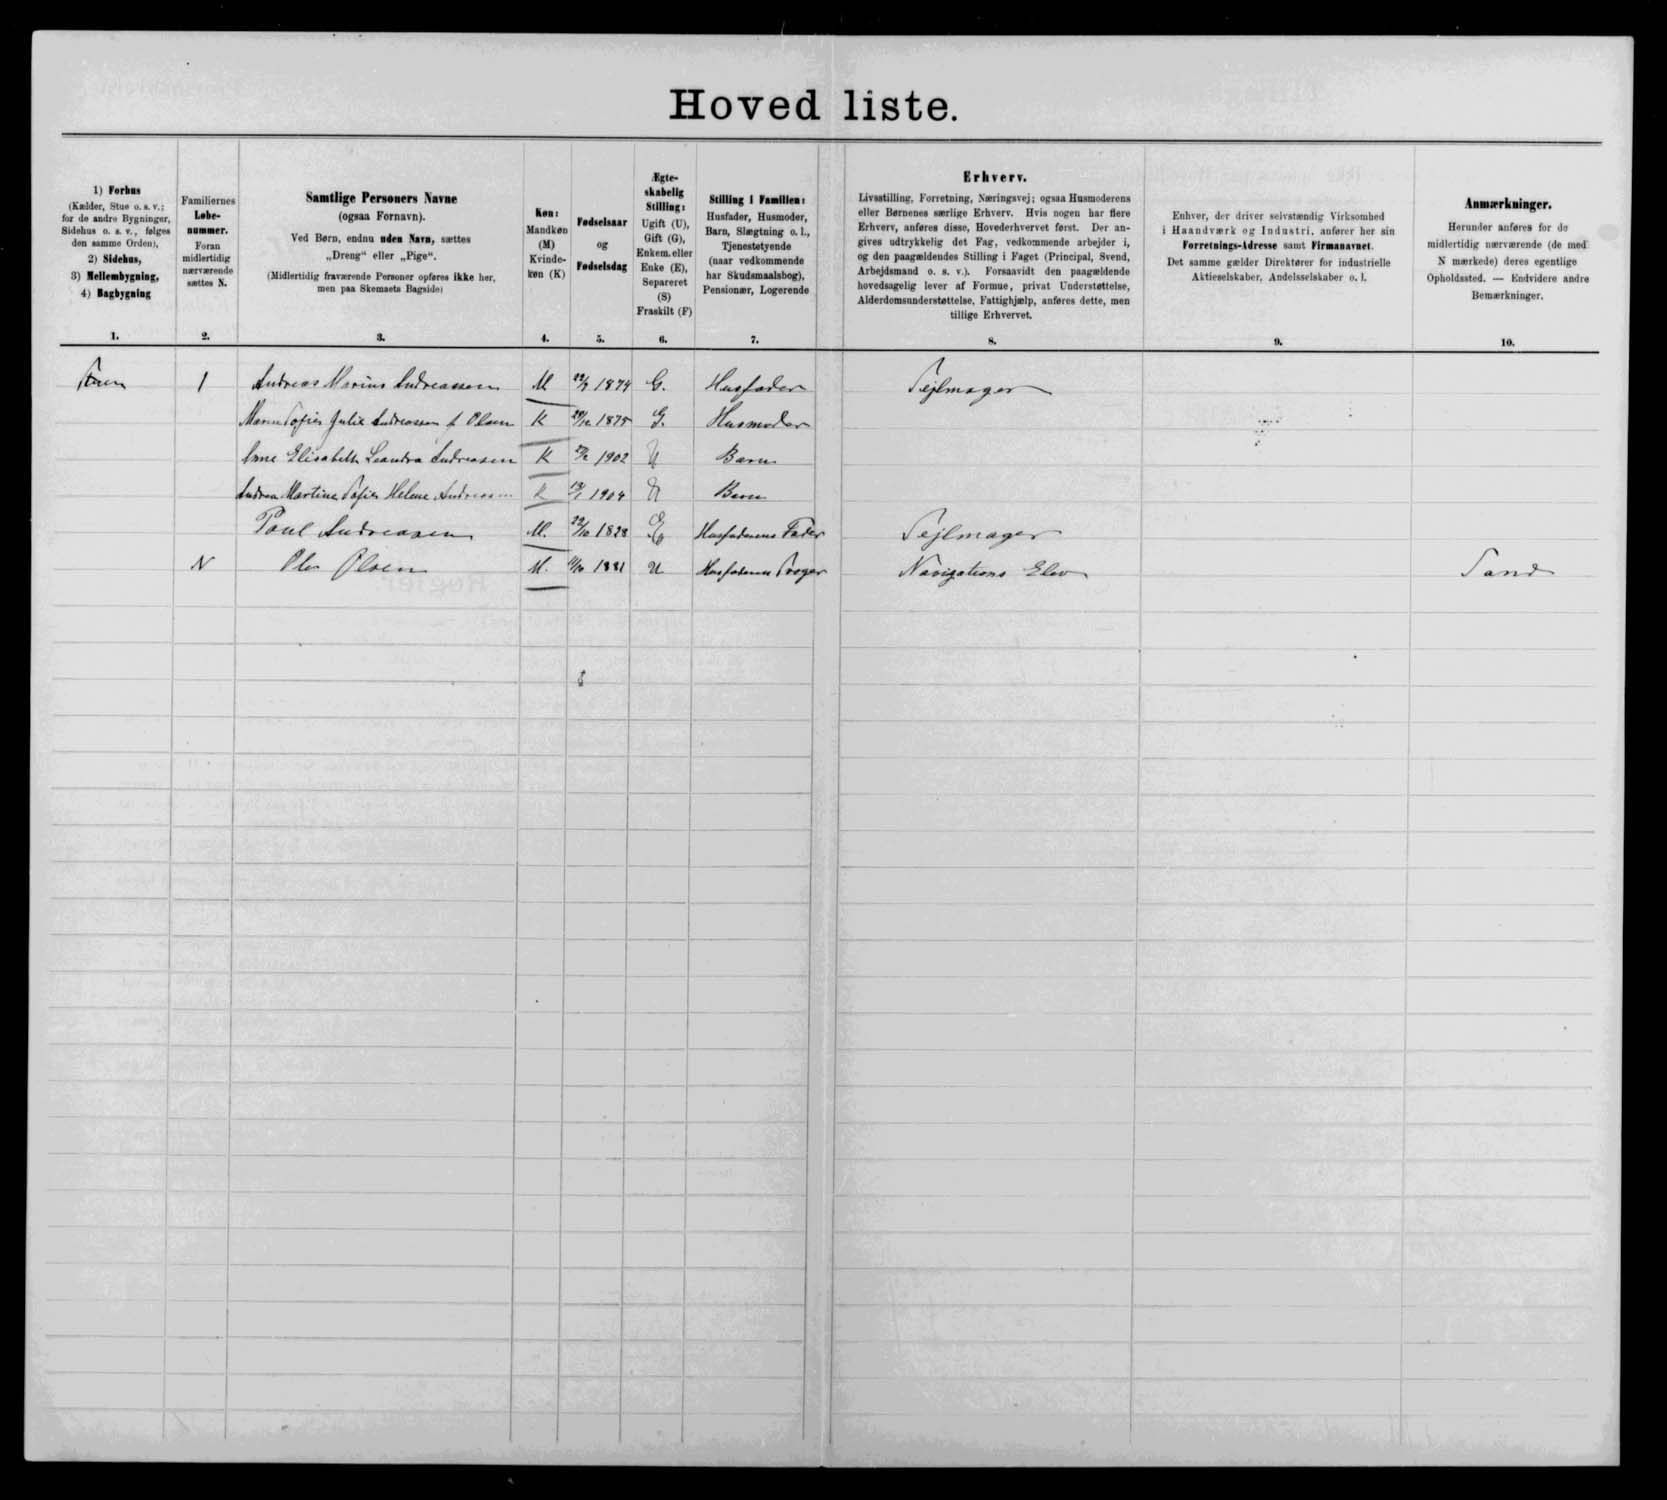 Hoved liste.
1) Forhus
(Kælder, Stue o. s. v.;
for de andre Bygninger,
Sidehus o. s. v., følges
den samme Orden),
2) Sidehus,
3) Mellembygning,
4) Bagbygning
1.
Familiernes
Løbe-
nummer.
Foran
midlertidig
nærværende
sættes N.
2.
Samtlige Personers Navne
(ogsaa Fornavn).
Ved Børn, endnu uden Navn, sættes
„Dreng“ eller „Pige“.
(Midlertidig fraværende Personer opføres ikke her,
men paa Skemaets Bagside)
3.
Køn:
Mandkøn
(M)
Kvinde-
køn (K)
4.
Fødselsaar
og
Fødselsdag
5.
Ægte-
skabelig
Stilling:
Ugift (U),
Gift (G),
Enkem. eller
Enke (E),
Separeret
(S)
Fraskilt (F)
6.
Stilling i Familien:
Husfader, Husmoder,
Barn, Slægtning o. l.,
Tjenestetyende
(naar vedkommende
har Skudsmaalsbog),
Pensionær, Logerende
7.
Erhverv.
Livsstilling, Forretning, Næringsvej; ogsaa Husmoderens
eller Børnenes særlige Erhverv. Hvis nogen har flere
Erhverv, anføres disse, Hovederhvervet først. Der an-
gives udtrykkelig det Fag, vedkommende arbejder i,
og den paagældendes Stilling i Faget (Principal, Svend,
Arbejdsmand o. s. v.). Forsaavidt den paagældende
hovedsagelig lever af Formue, privat Understøttelse,
Alderdomsunderstøttelse, Fattighjælp, anføres dette, men
tillige Erhvervet.
8.
Enhver, der driver selvstændig Virksomhed
i Haandværk og Industri, anfører her sin
Forretnings-Adresse samt Firmanavnet.
Det samme gælder Direktører for industrielle
Aktieselskaber, Andelsselskaber o. l.
9.
Anmærkninger.
Herunder anføres for de
midlertidig nærværende (de med
N mærkede) deres egentlige
Opholdssted. — Endvidere andre
Bemærkninger.
10.
1 Andreas Marius Andreassen M 1874 G. Husfader Sejlmager
Maren Sofie Julie Andreassen f Olsen K 29/12 1875 G. Husmoder
Anne Elisabeth Leandra Andreasen K 1902 U Barn
Andrea Martine Sofie Helene Andreasen K 1904 U Barn
Poul Andreasen M. 22/10 1828 E Husfaderens Fader Sejlmager
N Ole Olsen M. 1881 U Husfaderens Svoger Navigations Elev Sand